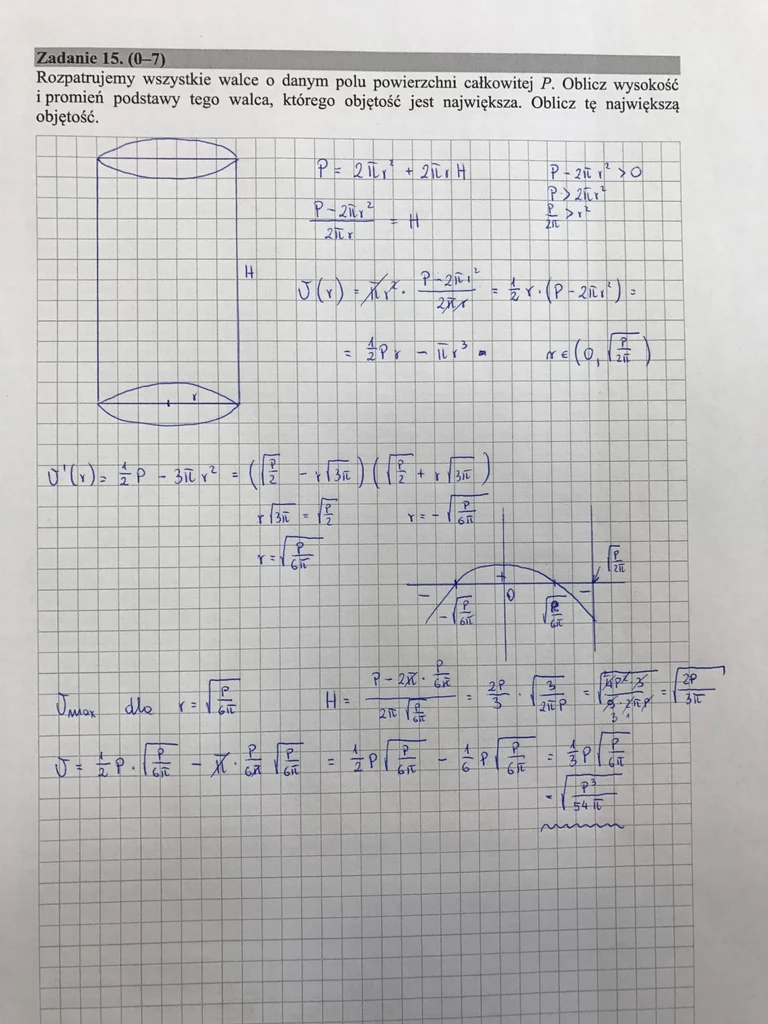 Zadanie 15. (0–7)
Rozpatrujemy wszystkie walce o danym polu powierzchni całkowitej P. Oblicz wysokość
i promień podstawy tego walca, którego objętość jest największa. Oblicz tę największą
objętość.
P = 2πr² + 2πrH
P - 2πr² > 0
P > 2πr²
P/2π > r²
(P - 2πr²)/(2πr) = H
H
V(r) = πr² · (P - 2πr²)/(2πr) = 1/2 r · (P - 2πr²) =
= 1/2 Pr - πr³
r ∈ (0, √(P/2π))
r
V'(r) = 1/2 P - 3πr² = (√(P/2) - r√(3π)) (√(P/2) + r√(3π))
r√(3π) = √(P/2)
r = -√(P/6π)
r = √(P/6π)
√(P/2π)
- + -
0
-√(P/6π) √(P/6π)
Vmax dla r = √(P/6π)
H = (P - 2π · P/6π)/(2π √(P/6π)) = 2P/3 · √(3/2πP) = √(4P²·3/9·2πP) = √(2P/3π)
3 1
V = 1/2 P · √(P/6π) - π · P/6π √(P/6π) = 1/2 P √(P/6π) - 1/6 P √(P/6π) = 1/3 P √(P/6π)
= √(P³/54π)